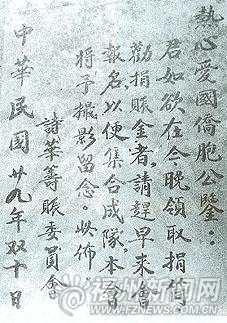 熱心愛國僑胞公鑒：
君如欲在今晚領取捐借
勸捐賑金者，請趕早來會
報名以便集合成隊本會
將予攝影留念。此佈
詩華籌賑委員會
中華民國廿九年双十日
福州新闻网
WWW.FZNEWS.COM.CN